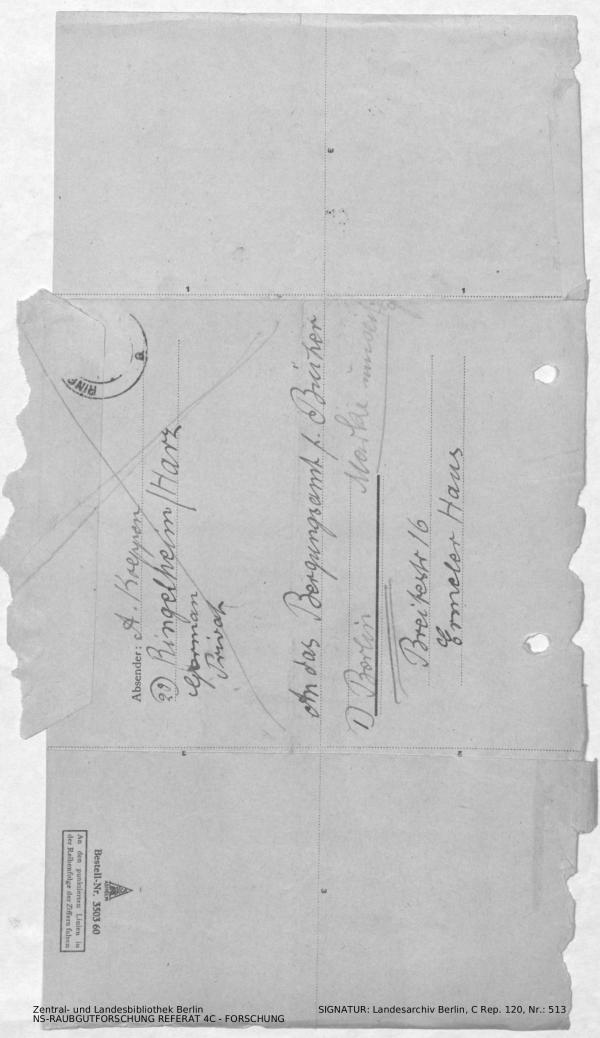 Absender: A. Kreppon
20 Ringelheim/Harz
German
Privat
RING
a
An das Bergungsamt f. Bücher
Berlin
Breitestr 16
Ermeler Haus
1
1
2
2
3
3
Bestell-Nr. 3503 60
An den punktierten Linien in
der Reihenfolge der Ziffern falten
Zentral- und Landesbibliothek Berlin
NS-RAUBGUTFORSCHUNG REFERAT 4C - FORSCHUNG
SIGNATUR: Landesarchiv Berlin, C Rep. 120, Nr.: 513